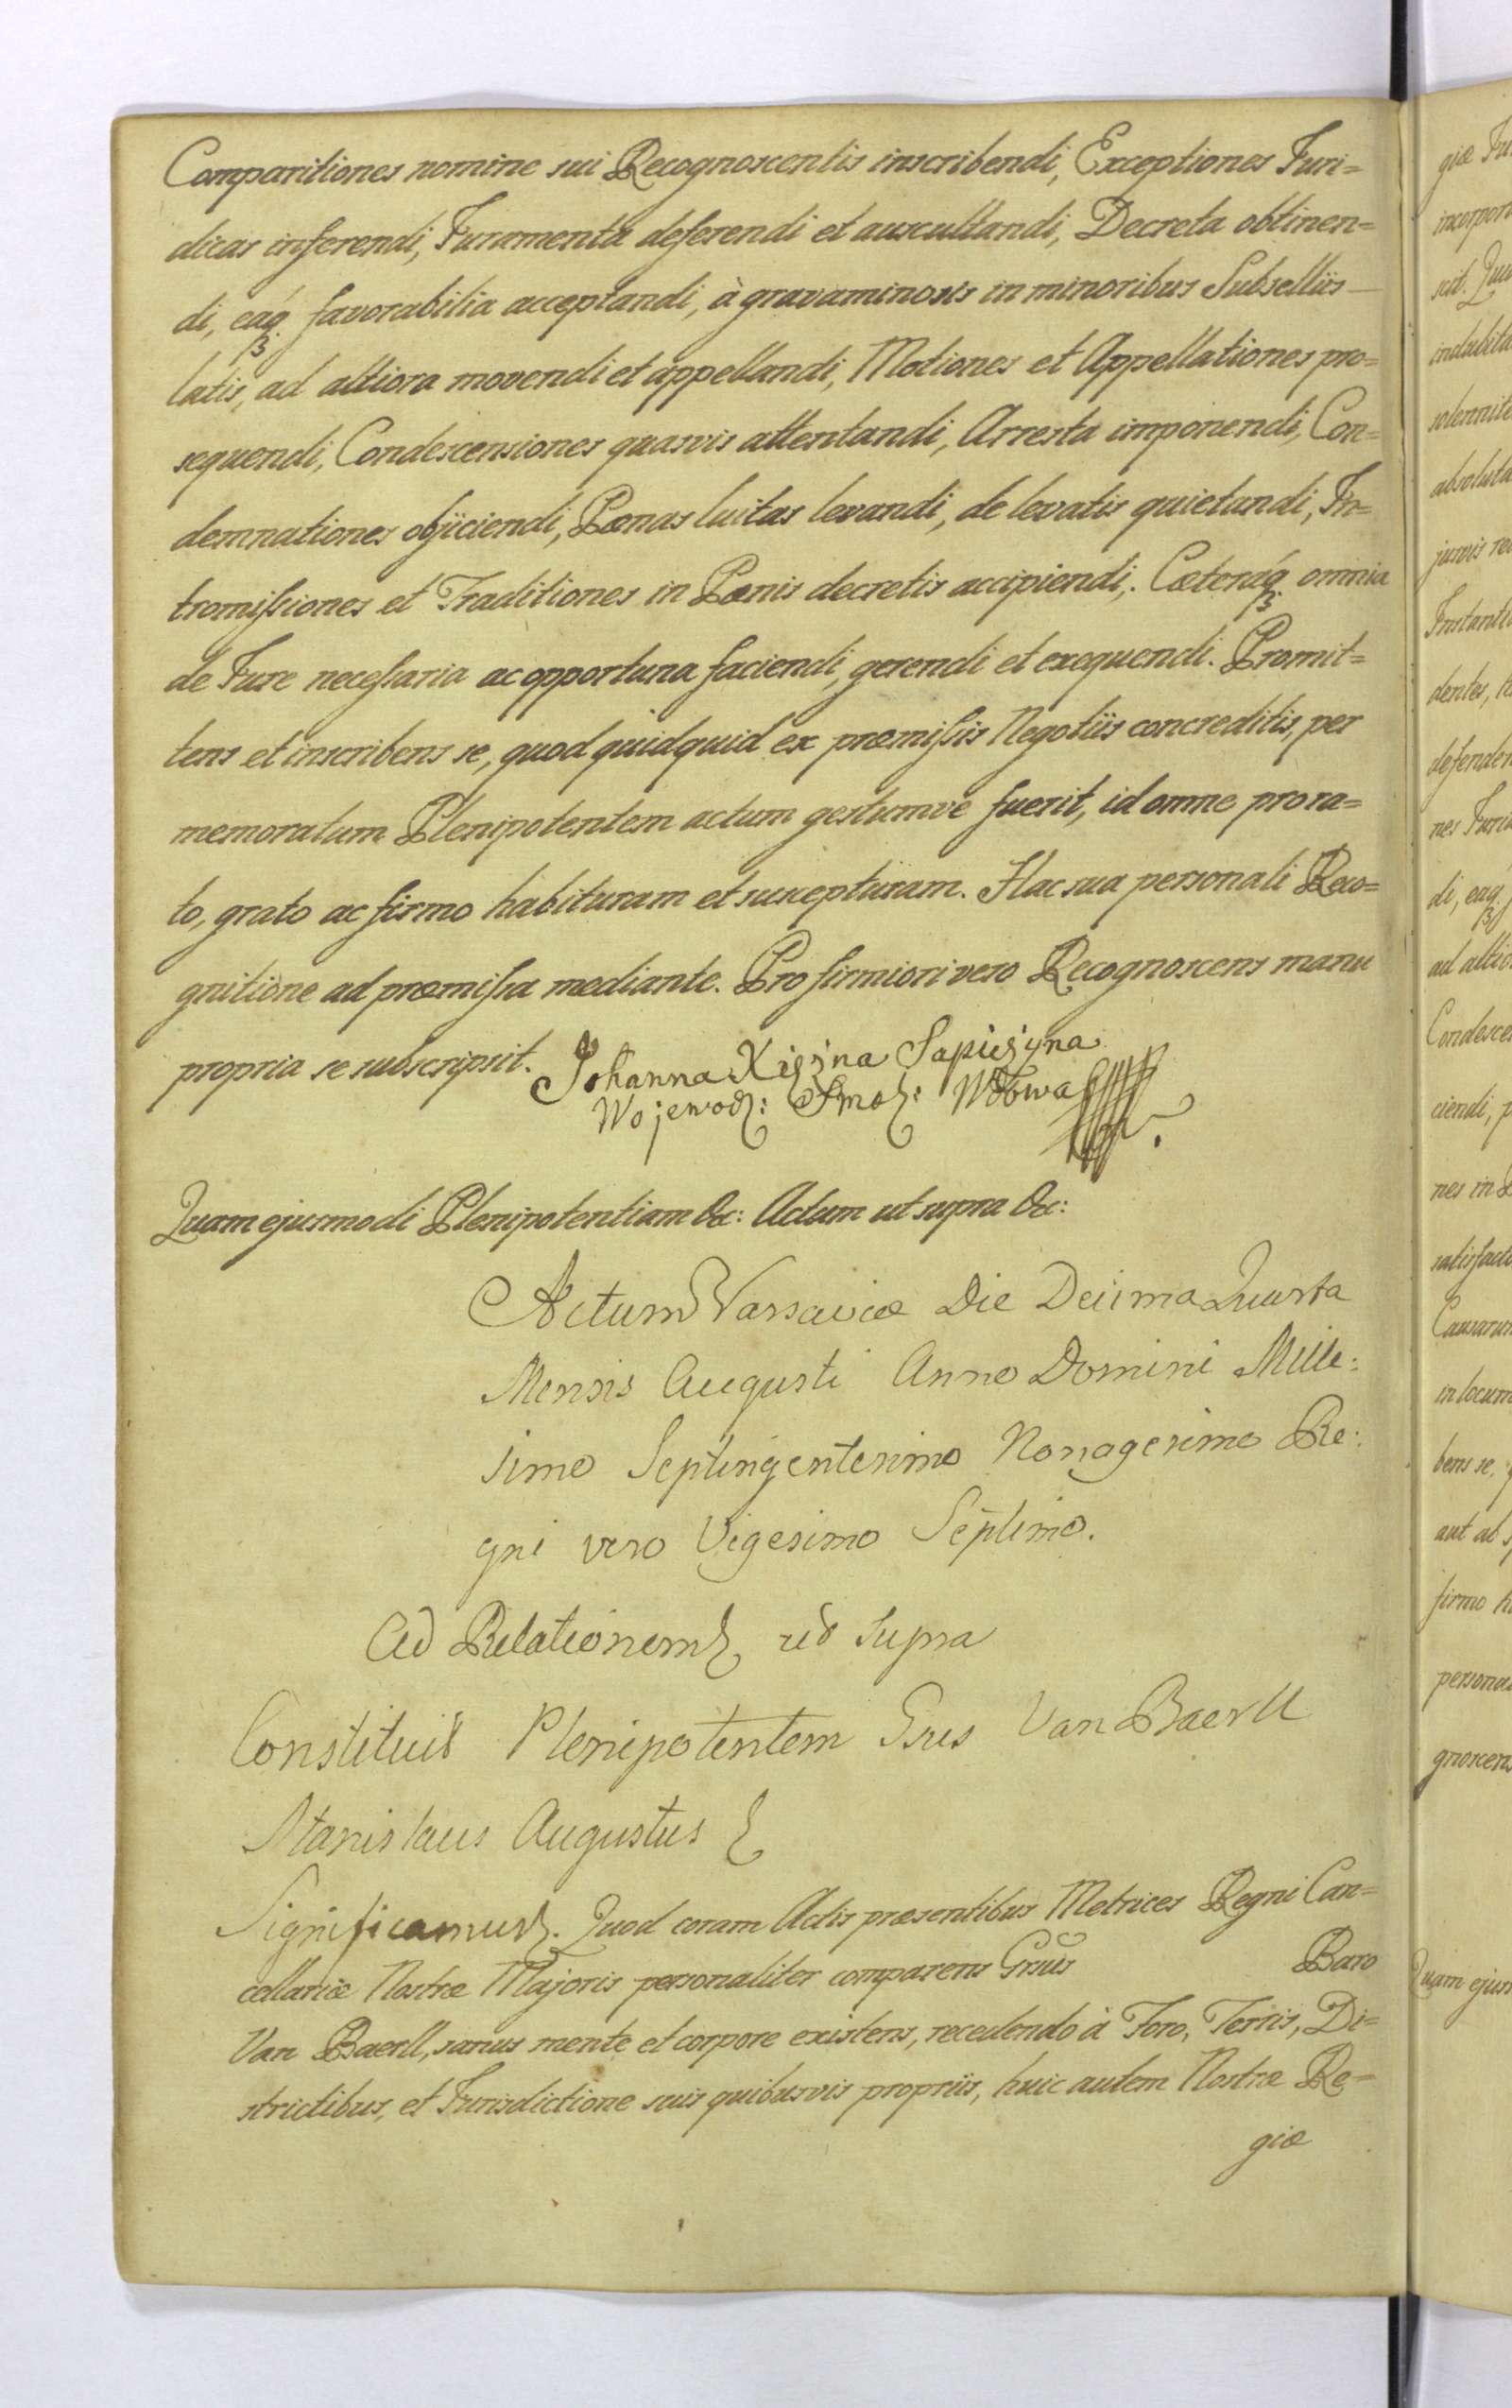 Comparitiones nomine sui Recognoscentis inscribendi, Exceptiones Juri=
dicas inferendi, Juramenta deferendi et auscultandi, Decreta obtinen=
di, eáq₃ favorabilia acceptandi, à gravaminosis in minoribus Subselliis
latis, ad altiora movendi et appellandi, Motiones et Appellationes pro=
sequendi, Condescensiones quasvis attentandi, Arresta imponendi, Con=
demnationes objiciendi, Pœnas luitas levandi, de levatis quietandi, In=
tromißiones et Traditiones in Pœnis decretis accipiendi,. Cæteráq₃ omnia
de Jure neceßaria ac opportuna faciendi, gerendi et exequendi. Promit=
tens et inscribens se, quod quidquid ex præmißis Negotiis concreditis, per
memoratum Plenipotentem actum gestumve fuerit, id omne pro ra=
to, grato ac firmo habituram et suscepturam. Hac sua personali Reco=
gnitione ad præmißa mediante. Pro firmiori vero Recognoscens manu
propria se subscripsit. Johanna Xiężna Sapieżyna
Wojewodz: Smol: Wdowa
Quam ejusmodi Plenipotentiam &c: Actum ut supra &c:
Actum Varsaviæ Die Decima Quarta
Mensis Augusti Anno Domini Mille:
simo Septingentesimo Nonagesimo Re:
gni vero Vigesimo Septimo.
Ad Relationem ut supra
Constituit Plenipotentem Gsus Van Baerll
Stanislaus Augustus
Significamus. Quod coram Actis præsentibus Metrices Regni Can=
cellariæ Nostræ Majoris personaliter comparens Gsus Baro
Van Baerll, sanus mente et corpore existens, recedendo à Foro, Terris, Di=
strictibus, et Jurisdictione suis quibusvis propriis, huic autem Nostræ Re=
giæ